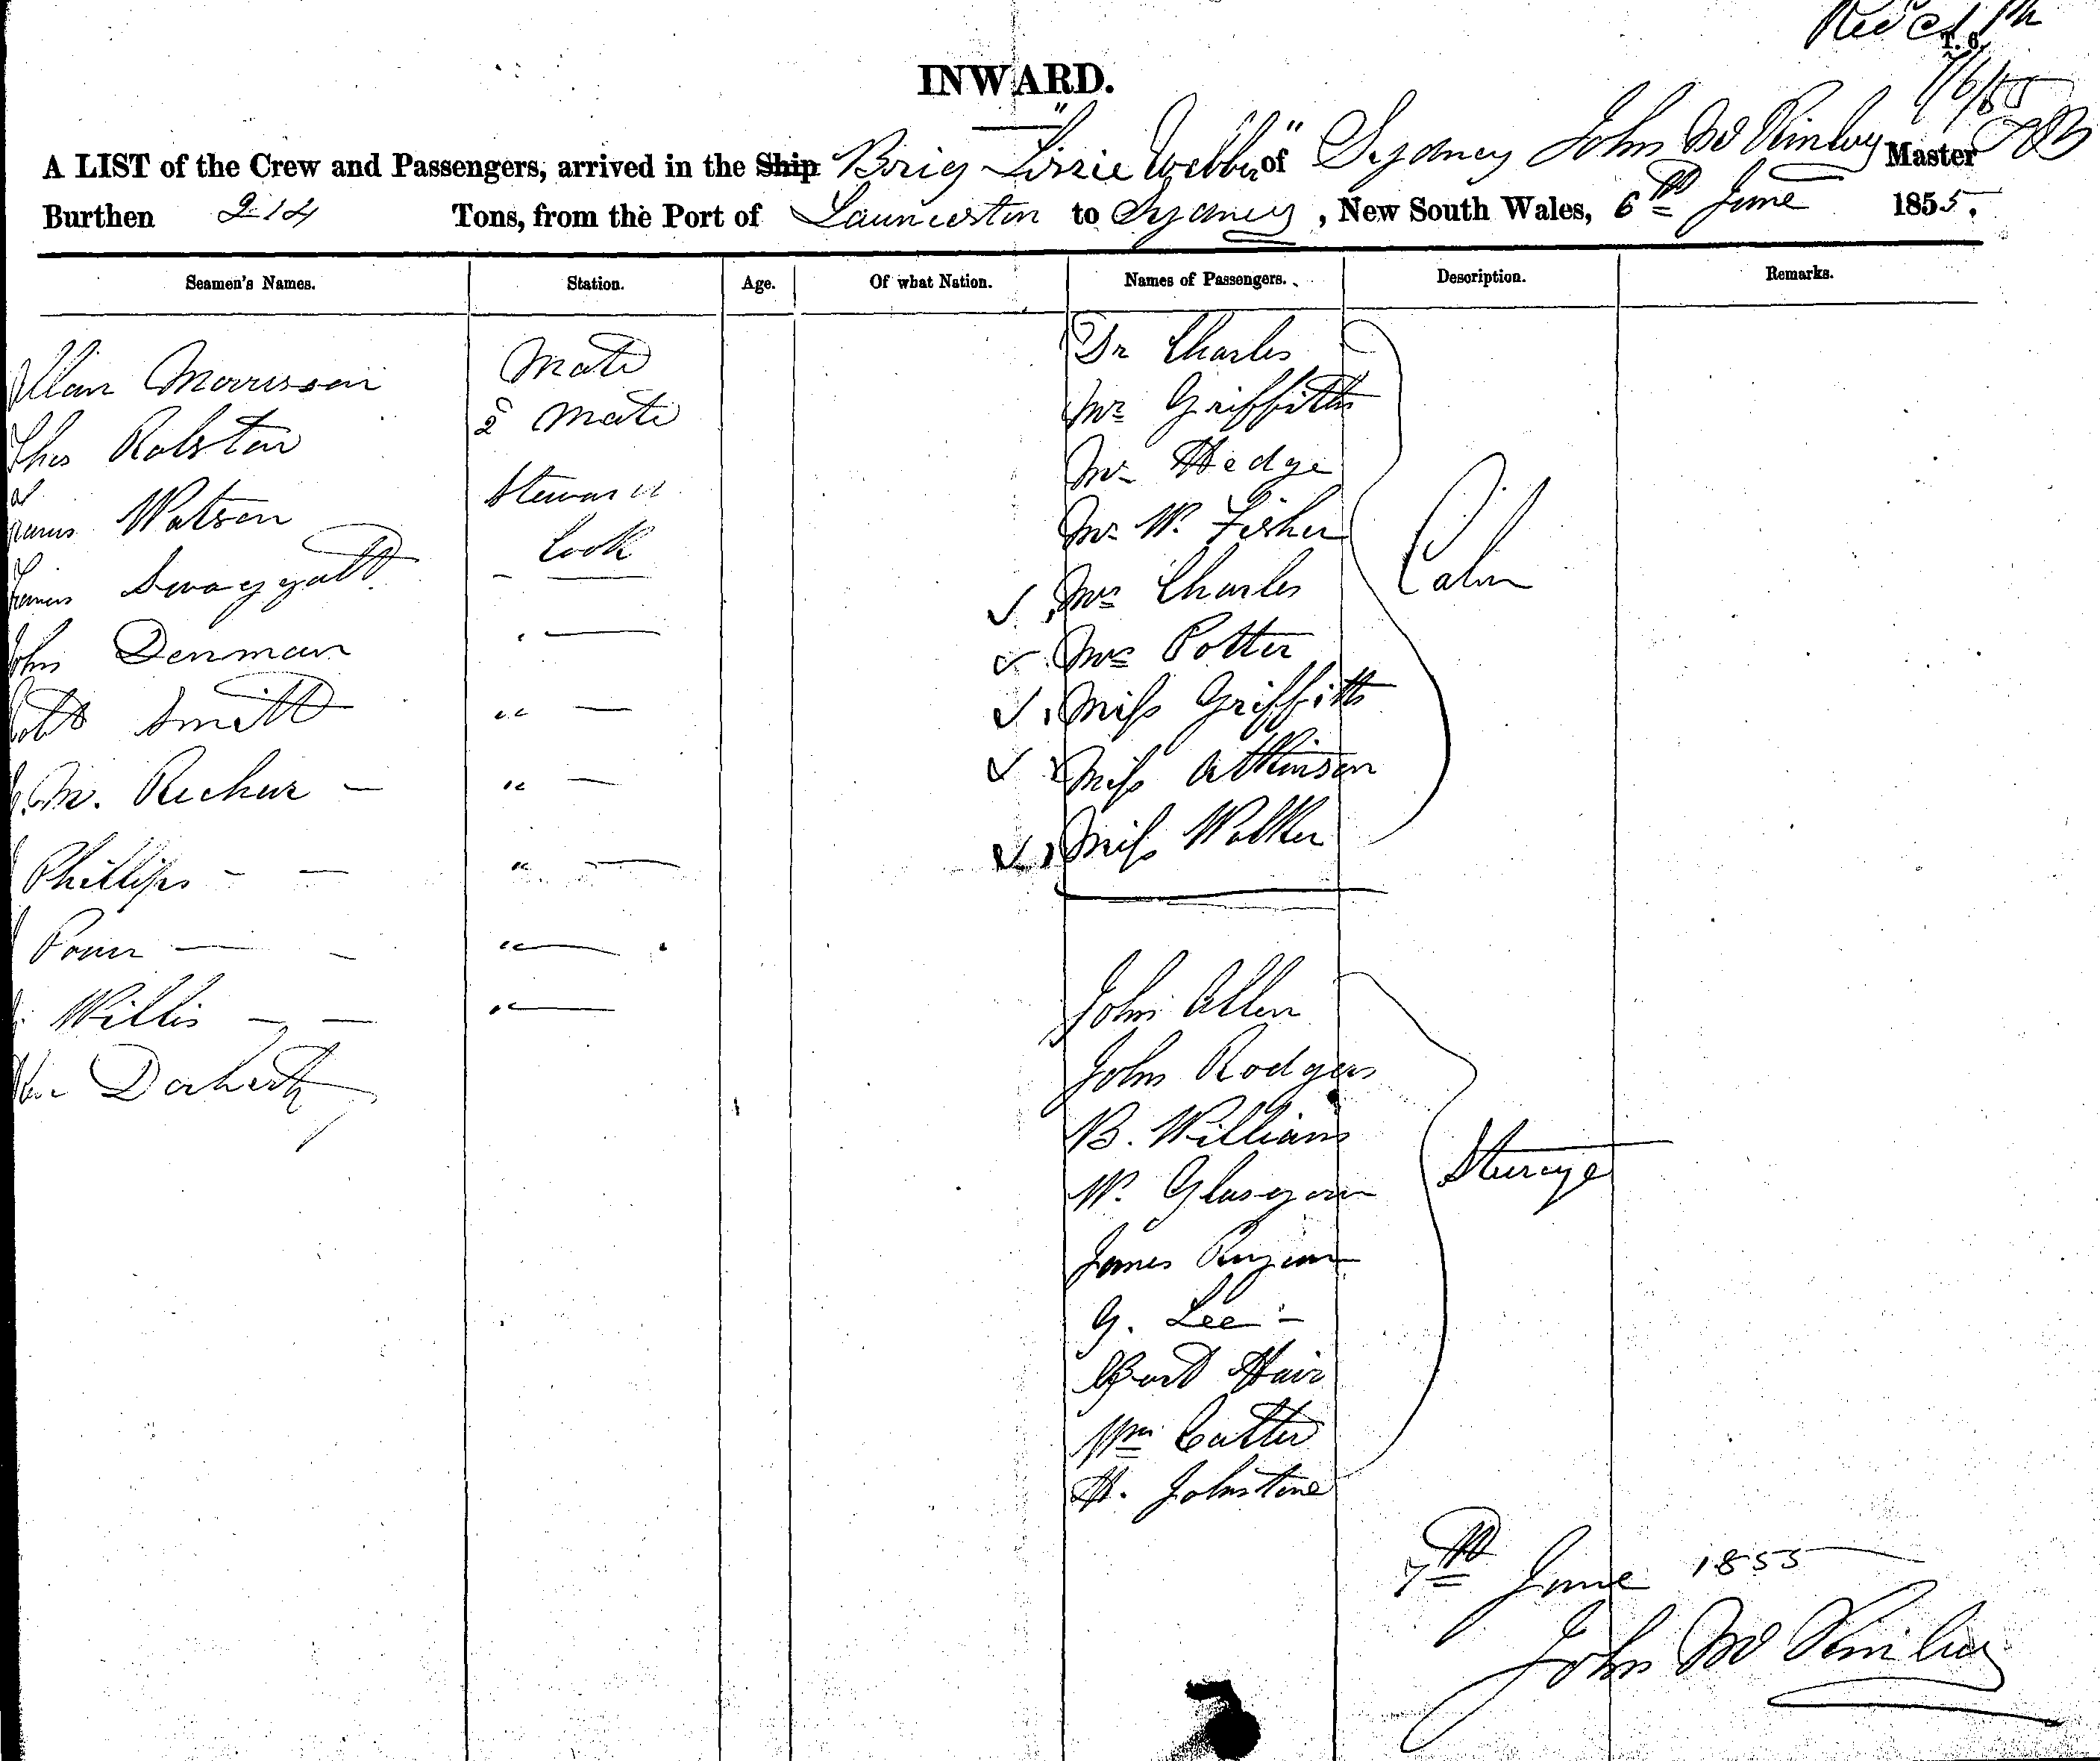 Recd 7th
T. 6.
7/6/55
INWARD.
A LIST of the Crew and Passengers, arrived in the Ship Brig "Lizzie Webber" of Sydney John McKinlay Master
Burthen 214 Tons, from the Port of Launceston to Sydney, New South Wales, 6th June 1855.
Seamen's Names. Station. Age. Of what Nation. Names of Passengers. Description. Remarks.
Allan Morrison Mate Dr Charles
Thos Ralston 2d Mate Mr Griffiths
Watson Steward Mr Hedge
Swaggatt Cook Mr W. Fisher
Mrs Charles Cabin
John Denman Mrs Potter
Robt Smith " Miss Griffiths
M. " Miss Atkinson
Phillips " Miss Walker
Power "
Willis " John Allen
Doherty John Rodgers
B. Williams
W. Glasgow Steerage
James
G. Lee
Hair
Wm Cutter
H. Johnstone
7th June 1855
John McKinlay